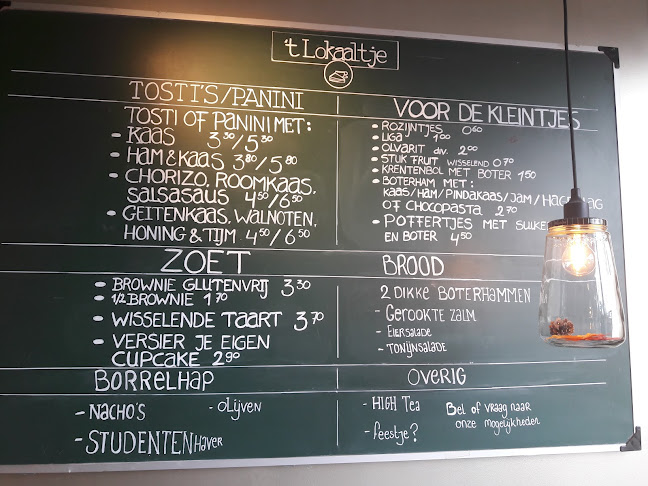 't Lokaaltje
TOSTI'S/PANINI
TOSTI OF PANINI MET:
- KAAS 3³⁰/5³⁰
- HAM & KAAS 3⁸⁰/5⁸⁰
- CHORIZO, ROOMKAAS,
SALSASAUS 4⁵⁰/6⁵⁰
- GEITENKAAS, WALNOTEN,
HONING & TIJM 4⁵⁰/6⁵⁰
VOOR DE KLEINTJES
• ROZIJNTJES 0⁶⁰
• LIGA 1⁰⁰
• OLVARIT div. 2⁰⁰
• STUK FRUIT WISSELEND 0⁷⁰
• KRENTENBOL MET BOTER 1⁵⁰
• BOTERHAM MET:
KAAS/HAM/PINDAKAAS/JAM/
OF CHOCOPASTA 2⁷⁰
• POFFERTJES MET
EN BOTER 4⁵⁰
ZOET
• BROWNIE GLUTENVRIJ 3³⁰
• 1/2 BROWNIE 1⁷⁰
• WISSELENDE TAART 3⁷⁰
• VERSIER JE EIGEN
CUPCAKE 2⁹⁰
BROOD
2 DIKKE BOTERHAMMEN
- GEROOKTE ZALM
- EIERSALADE
- TONIJNSALADE
BORRELHAP
- NACHO'S
- OLIJVEN
- STUDENTENHAVER
OVERIG
- HIGH Tea
- feestje?
Bel of vraag naar
onze mogelijkheden